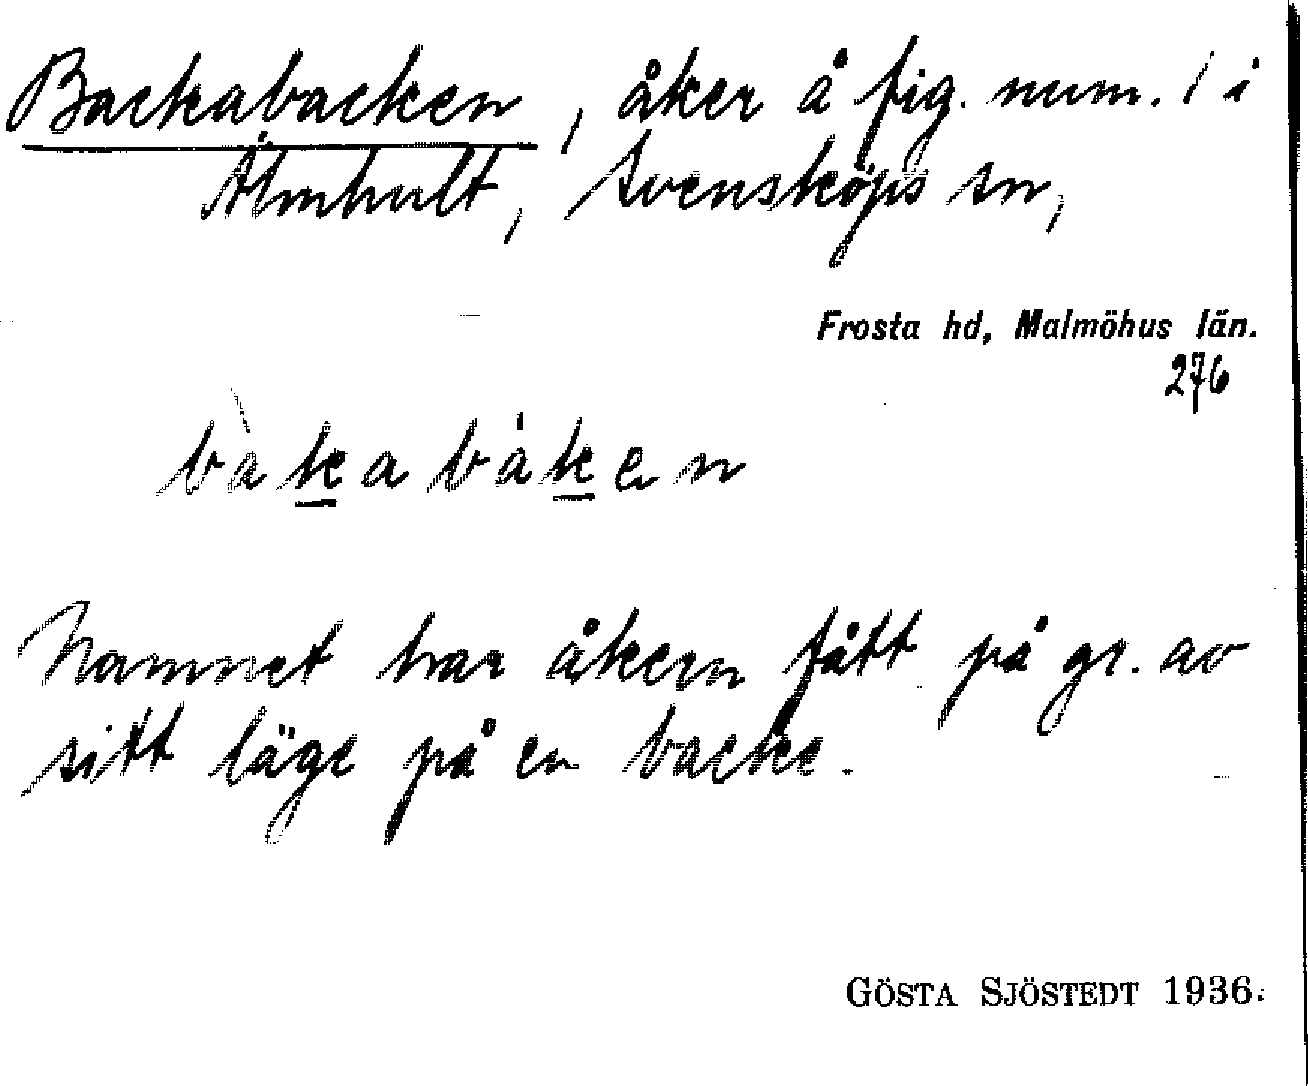 Backabacken, åker å fig. num. 1 i
Älmhult, Svensköps sn,
Frosta hd, Malmöhus län.
276
bàkabáken
Namnet har åkern fått på gr. av
sitt läge på en backe.
GÖSTA SJÖSTEDT 1936.